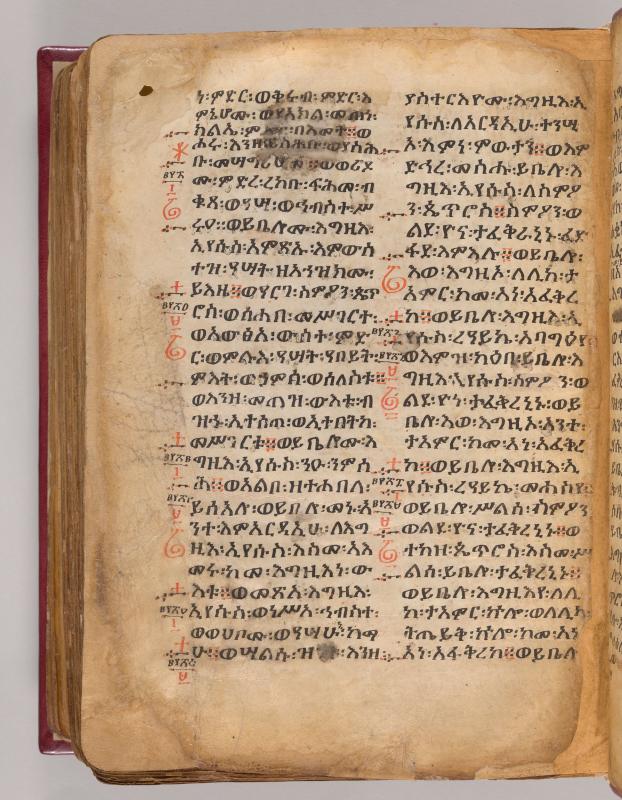 ነ፡ምድር፡ወቅሩብ፡ምድር፡እ
ምኔሆሙ፡ወየአክል፡መጠነ፡
ክልኤ፡በእመት፡፡ወ
ሖሩ፡እንዘ፡ይስሕቡ፡ወያሰሕ
ቡ፡መሣግሪሆሙ፡፡ወወሪዶ
ሙ፡ምድረ፡ረከቡ፡ፋሕመ፡ብ
ቁጸ፡ወዓሣ፡ወኅብስተ፡ሥ
ሩዐ፡፡ወይቤሎሙ፡እግዚእ፡
ኢየሱስ፡አምጽኡ፡እምውስ
ተዝ፡ዓሣት፡ዘአኀዝክሙ፡
ይእዜ፡፡ወዓርገ፡ስምዖን፡ጴጥ
ሮስ፡ወሰሐበ፡መሥገርተ፡
ወአውፅአ፡ውስተ፡ምድ
ር፡ወምልእ፡ዓሣት፡ዓበይት፡
ምእት፡ወኃምሳ፡ወሰለስቱ፡፡
ወእንዘ፡መጠነዝ፡ውእቱ፡ብ
ዝኁ፡ኢተሰጠ፡ወኢተበትከ፡
መሥገርቱ፡፡ወይቤሎሙ፡እ
ግዚእ፡ኢየሱስ፡ንዑ፡ንምሳ
ሕ፡፡ወአልቦ፡ዘተሐበለ፡
ይሰአሎ፡ወይበሎ፡መኑ፡አ
ንተ፡እምአርዳኢሁ፡ለእግ
ዚእ፡ኢየሱስ፡እስመ፡አእ
መሩ፡ከመ፡እግዚእነ፡ው
እቱ፡፡ወመጽአ፡እግዚእ፡
ኢየሱስ፡ወነሥአ፡ኅብስተ፡
ወወሀቦሙ፡ወዓሣሁ፡ከማ
ሁ፡፡ወሣልሱ፡እንዘ፡
ያስተርእዮሙ፡እግዚእ፡ኢ
የሱስ፡ለአርዳኢሁ፡ተንሢ
ኦ፡እምነ፡ምውታን፡፡ወእም
ድኅረ፡መስሑ፡ይቤሎ፡እ
ግዚእ፡ኢየሱስ፡ለስምዖ
ን፡ጴጥሮስ፡፡ስምዖን፡ወ
ልደ፡ዮና፡ታፈቅረኒኑ፡ፈድ
ፋደ፡እምእሉ፡፡ወይቤሎ፡
እወ፡እግዚኦ፡ለሊከ፡ታ
አምር፡ከመ፡አነ፡አፈቅረ
ከ፡፡ወይቤሎ፡እግዚእ፡ኢ
የሱስ፡ረዓይኬ፡አባግዕየ፡፡
ወእምዝ፡ካዕበ፡ይቤሎ፡እ
ግዚእ፡ኢየሱስ፡ስምዖን፡ወ
ልደ፡ዮና፡ታፈቅረኒኑ፡ወይ
ቤሎ፡እወ፡እግዚኦ፡አንተ፡
ታአምር፡ከመ፡አነ፡አፈቅረ
ከ፡፡ወይቤሎ፡እግዚእ፡ኢ
የሱስ፡ረዓይኬ፡መሐስየ፡
ወይቤሎ፡ሥልሰ፡ስምዖን፡
ወልደ፡ዮና፡ታፈቅረኒኑ፡፡ወ
ተከዘ፡ጴጥሮስ፡እስመ፡ሥ
ልሰ፡ይቤሎ፡ታፈቅረኒኑ፡፡
ወይቤሎ፡እግዚእየ፡ለሊ
ከ፡ታአምር፡ኵሎ፡ወለሊከ፡
ትጤይቅ፡ኵሎ፡ከመ፡አነ
አነ፡አፈቅረከ፡፡ወይቤሎ